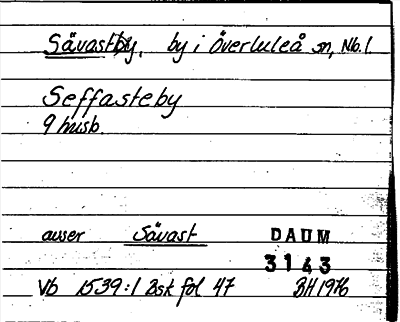 Sävastby, by i Överluleå sn, Nb. l.
Seffasteby
9 husb.
avser Sävast DAUM
3143
Vb 1539:1 Bsk fol 47 BH 1976